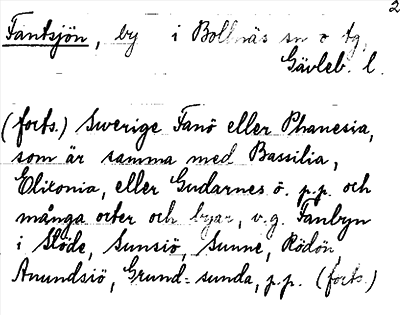 2
Fantsjön, by i Bollnäs sn o tg,
Gävleb. l.
(forts.) Swerige Fanö eller Phanesia,
som är samma med Bassilia,
Elixonia, eller Gudarnes ö. p.p. och
många orter och byar, v.g. Fanbyn
i Stöde, Sunsiö, Sunne, Rödön
Anundsiö, Grund-sunda, p.p. (forts.)